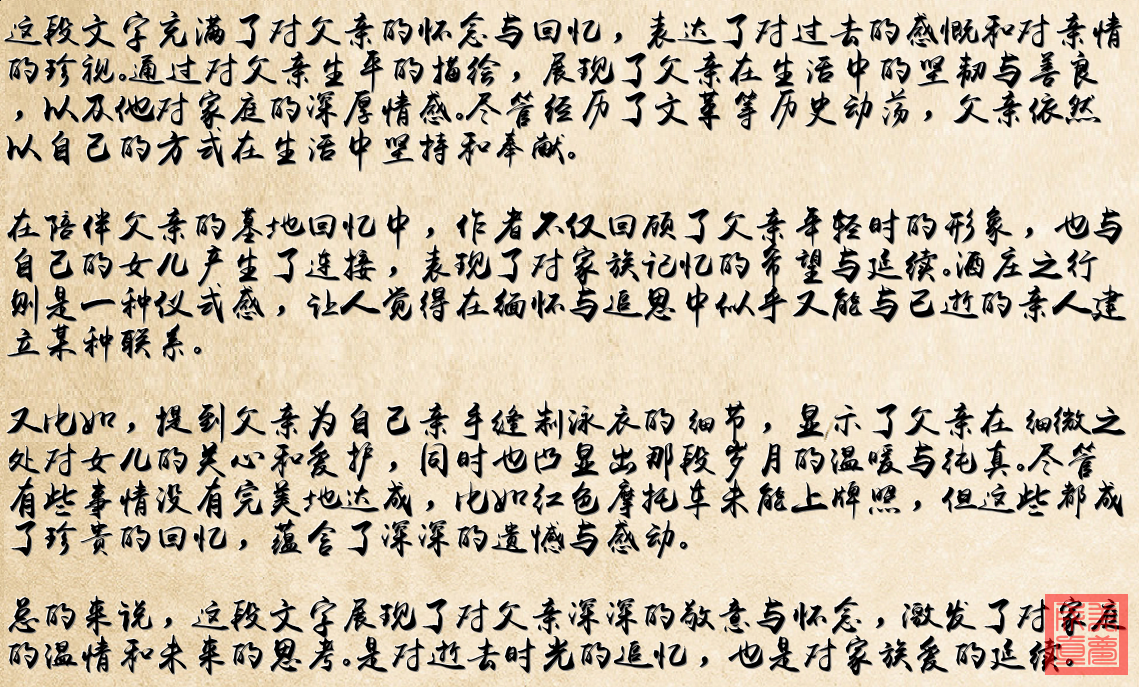 这段文字充满了对父亲的怀念与回忆，表达了对过去的感慨和对亲情
的珍视。通过对父亲生平的描绘，展现了父亲在生活中的坚韧与善良
，以及他对家庭的深厚情感。尽管经历了文革等历史动荡，父亲依然
以自己的方式在生活中坚持和奉献。
在陪伴父亲的墓地回忆中，作者不仅回顾了父亲年轻时的形象，也与
自己的女儿产生了连接，表现了对家族记忆的希望与延续。酒庄之行
则是一种仪式感，让人觉得在缅怀与追思中似乎又能与已逝的亲人建
立某种联系。
又比如，提到父亲为自己亲手缝制泳衣的细节，显示了父亲在细微之
处对女儿的关心和爱护，同时也凸显出那段岁月的温暖与纯真。尽管
有些事情没有完美地达成，比如红色摩托车未能上牌照，但这些都成
了珍贵的回忆，蕴含了深深的遗憾与感动。
总的来说，这段文字展现了对父亲深深的敬意与怀念，激发了对家庭
的温情和未来的思考。是对逝去时光的追忆，也是对家族爱的延续。